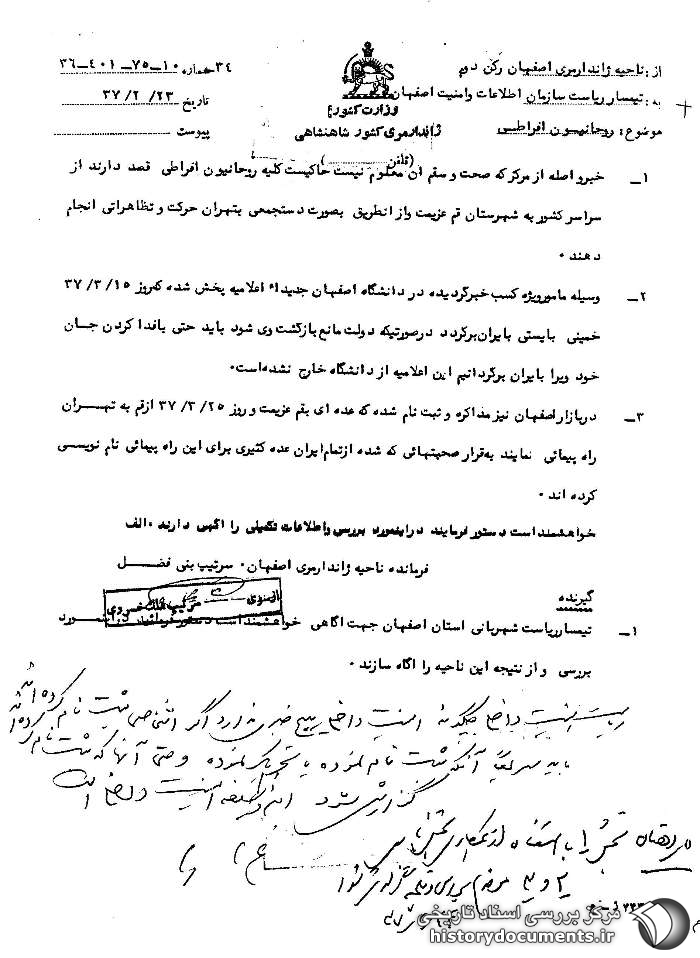 از : ناحیه ژاندارمری اصفهان رکن دوم
به : تیمسار ریاست سازمان اطلاعات و امنیت اصفهان
موضوع : روحانیون افراطی
وزارت کشور
ژاندارمری کشور شاهنشاهی
(تلفن ............)
شماره ۱۰_۷۵_۴۰۱_۳۶ ۳۴
تاریخ ۲۳ /۲ /۳۷
پیوست
۱_ خبر واصله از مرکز که صحت و سقم آن معلوم نیست حاکیست کلیه روحانیون افراطی قصد دارند از
سراسر کشور به شهرستان قم عزیمت و از انطریق بصورت دستجمعی بتهران حرکت و تظاهراتی انجام
دهند .
۲_ وسیله مامور ویژه کسب خبر گردیده در دانشگاه اصفهان جدیدا" اعلامیه پخش شده که روز ۱۵ /۳ /۳۷
خمینی بایستی بایران برگردد در صورتیکه دولت مانع بازگشت وی شود باید حتی با فدا کردن جان
خود ویرا بایران برگردانیم این اعلامیه از دانشگاه خارج نشده است.
۳_ در بازار اصفهان نیز مذاکره و ثبت نام شده که عده ای بقم عزیمت و روز ۲۵ /۳ /۳۷ از قم به تهران
راه پیمائی نمایند به قرار صحبتهائی که شده از تمام ایران عده کثیری برای این راه پیمائی نام نویسی
کرده اند .
خواهشمند است دستور فرمایند در اینمورد بررسی و اطلاعات تکمیلی را اگهی دارند . الف
فرمانده ناحیه ژاندارمری اصفهان . سرتیپ بنی فضل
از سوی سرتیپ ملک خسروی
گیرنده
۱_ تیمسار ریاست شهربانی استان اصفهان جهت آگاهی خواهشمند است دستور فرمائید در اینمورد
بررسی و از نتیجه این ناحیه را آگاه سازند .
ریاست امنیت داخلی چگونه امنیت داخلی هیچ خبری ندارد اگر اشخاصی ثبت نام کرده اند
باید سریعا آنکه ثبت نام نموده یا تحریک نموده و حتی آنها که ثبت نام کرده اند
گزارش شود این وظیفه امنیت داخلی است
مرکز بررسی اسناد تاریخی
historydocuments.ir